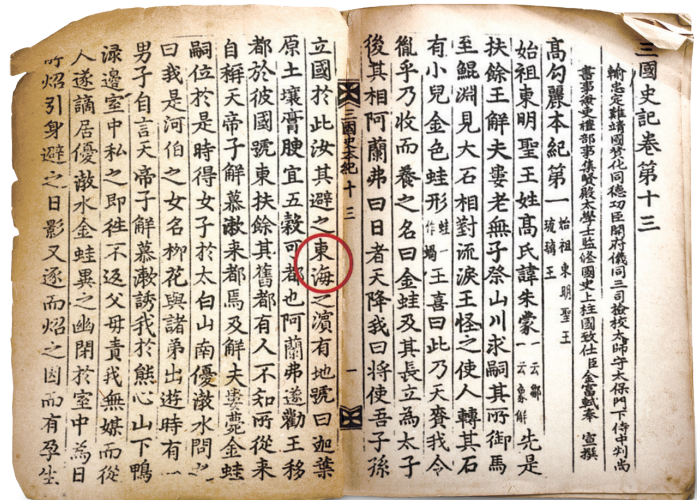 三國史記卷第十三
輸忠定難靖國贊化同德功臣開府儀同三司檢校太師守太保門下侍中判尚
書事兼吏禮部事集賢殿大學士監修國史上柱國致仕臣金富軾奉 宣撰
高勾麗本紀第一 始祖東明聖王 琉璃王
始祖東明聖王姓高氏諱朱蒙 一云鄒 一云象解 先是
扶餘王解夫婁老無子祭山川求嗣其所御馬
至鯤淵見大石相對流淚王怪之使人轉其石
有小兒金色蛙形 蛙一作蝸 王喜曰此乃天賚我令
胤乎乃收而養之名曰金蛙及其長立爲太子
後其相阿蘭弗曰日者天降我曰將使吾子孫
三國史本紀十三 一
立國於此汝其避之東海之濱有地號曰迦葉
原土壤膏腴宜五穀可都也阿蘭弗遂勸王移
都於彼國號東扶餘其舊都有人不知所從來
自稱天帝子解慕漱來都焉及解夫婁薨金蛙
嗣位於是時得女子於太白山南優渤水問之
曰我是河伯之女名柳花與諸弟出遊時有一
男子自言天帝子解慕漱誘我於熊心山下鴨
淥邊室中私之即往不返父母責我無媒而從
人遂謫居優渤水金蛙異之幽閉於室中爲日
所炤引身避之日影又逐而炤之因而有孕生